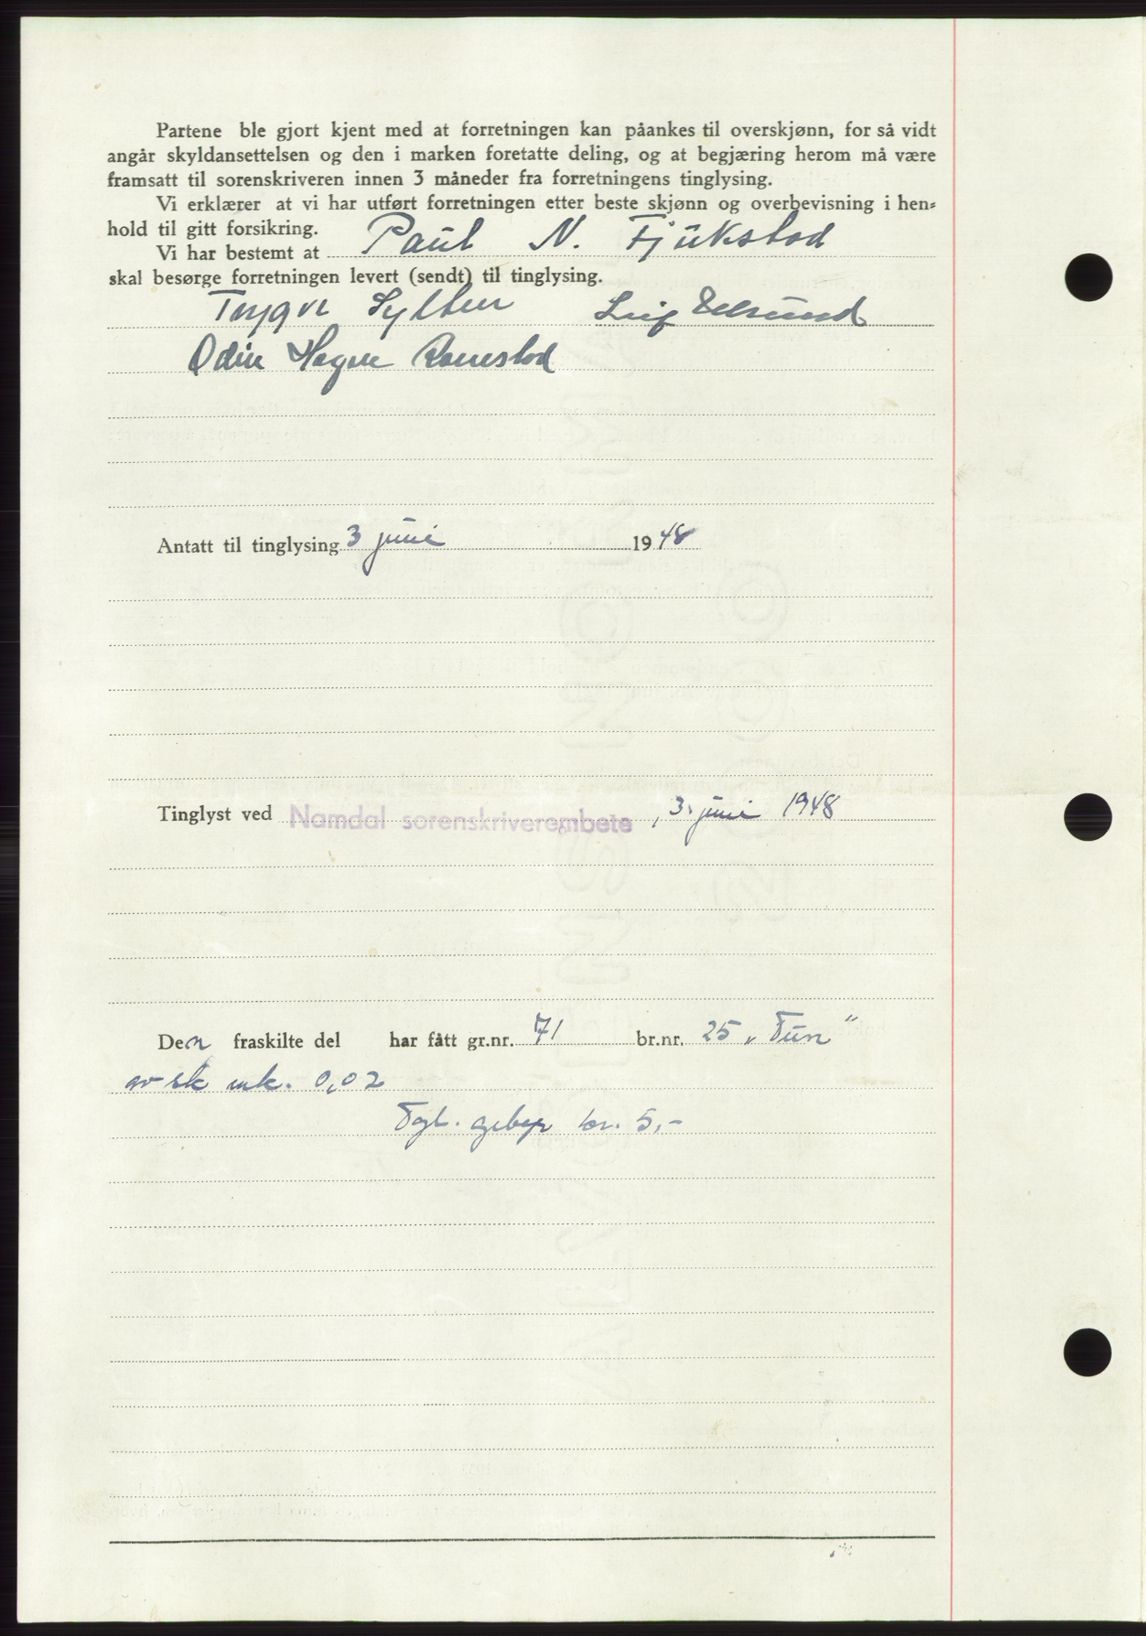 Partene ble gjort kjent med at forretningen kan påankes til overskjønn, for så vidt
angår skyldansettelsen og den i marken foretatte deling, og at begjæring herom må være
framsatt til sorenskriveren innen 3 måneder fra forretningens tinglysing.
Vi erklærer at vi har utført forretningen etter beste skjønn og overbevisning i hen-
hold til gitt forsikring.
Vi har bestemt at Paul N. Fjukstad
skal besørge forretningen levert (sendt) til tinglysing.
Trygve Leif
Odin Hagen
Antatt til tinglysing 3 juni 1948
Tinglyst ved Namdal sorenskriverembete, 3. juni 1948
Den fraskilte del har fått gr.nr. 71 br.nr. 25 „Tun"
av sk mk. 0,02
Tgl. gebyr kr. 5,-